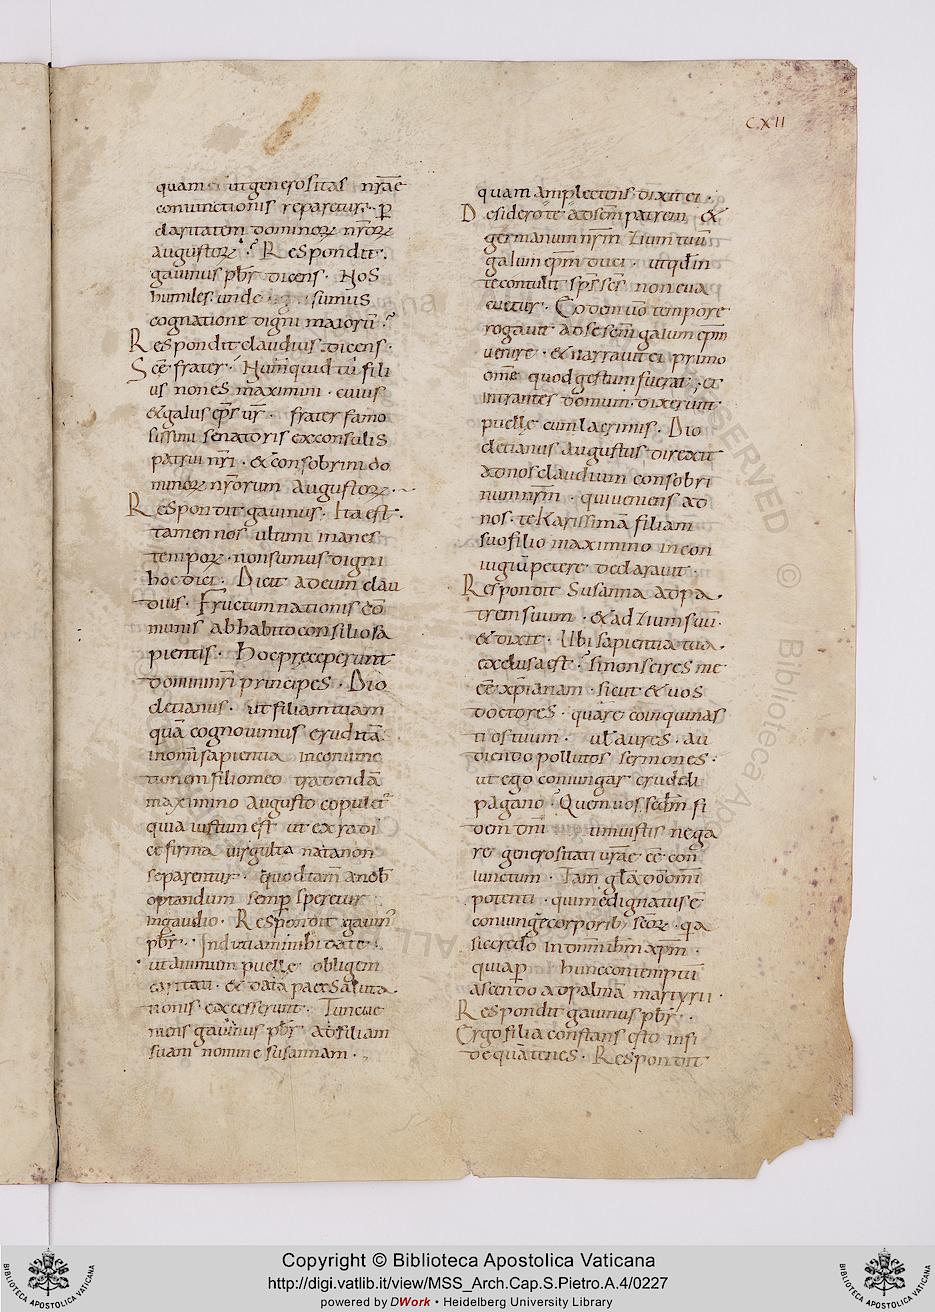 C XII
quam ut generositas nr̄ae
coniunctionis reparetur · p̄
claritatem dominoꝝ nr̄oꝝ
augustoꝝ · Respondit ·
gauinus pb̄r dicens · Nos
humiles unde sumus
cognatione digni maiorū
Respondit claudius dicens ·
Sc̄e frater · Nunquid tu fili
us non es maximini · cuius
& galus ep̄s ur̄ · frater famo
sissimi senatoris ex consulis
patrui nr̄i · & consobrini do
minoꝝ nr̄orum augustoꝝ ·
Respondit gauinus · Ita est ·
tamen nos ultimi in anes
tempoꝝ · non sumus digni
hoc dici · Dicit ad eum clau
dius · Fructum nationis cō
munis ab habito consilio sa
pientis · Hoc preceperunt
domini nr̄i principes · Dio
cletianus · ut filiam tuam
quā cognouimus eruditā
in om̄i sapientia in coniunc
tionem filio meo tradendā
maximino augusto copuletr̄
quia iustum est ut ex radi
ce firma uirgulta nata non
separentur · quod tam̄ a nob̄
optandum semp̄ speretur
in gaudio · Respondit gauin̄
pb̄r · Indutiam mihi date ·
ut animum puellę obligem
caritati · & data pace saluta
tionis excesserunt · Tunc ue
niens gauinus pb̄r ad filiam
suam nomine susannam ·
quam amplectens dixit ei ·
Desidero te ad sc̄m patrem &
germanum nr̄m &ium tuū
galum ep̄m duci · ut quid in
te contulit sp̄s sc̄s non eua
cuetur · Eodem uō tempore
rogauit ad se sc̄m galum ep̄m
uenire · & narrauit ei primo
om̄e quod gestum fuerat · et
intrantes domum dixerunt
puellę cum lacrimis · Dio
cletianus augustus direxit
ad nos claudium consobri
num nr̄m · qui ueniens ad
nos · te karissimā filiam
suo filio maximino in con
iugiū petere declarauit ·
Respondit Susanna ad pa
trem suum · & ad &ium suū ·
& dixit · Ubi sapientia tua
exclusa est · si non scires me
ēē xp̄ianam · sicut & uos
doctores · quare coinquinas
ti os tuum · uł aures · au
diendo pollutos sermones ·
ut ego coniungar crudeli
pagano · Quem uos secdm̄ fi
dem dn̄i uniuistis nega
re generositati ur̄ae ēē con
iunctum · Iam gła dō om̄i
potenti · qui me dignatus ē
coniung̃e corporib; sc̄oꝝ · qa
sic credo in dn̄m ihm̄ xp̄m ·
quia p̄ hunc contemptū
ascendo ad palmā martyrii ·
Respondit gauinus pb̄r ·
Ergo filia constans esto in fi
de quā tenes · Respondit
Copyright © Biblioteca Apostolica Vaticana
http://digi.vatlib.it/view/MSS_Arch.Cap.S.Pietro.A.4/0227
powered by DWork • Heidelberg University Library